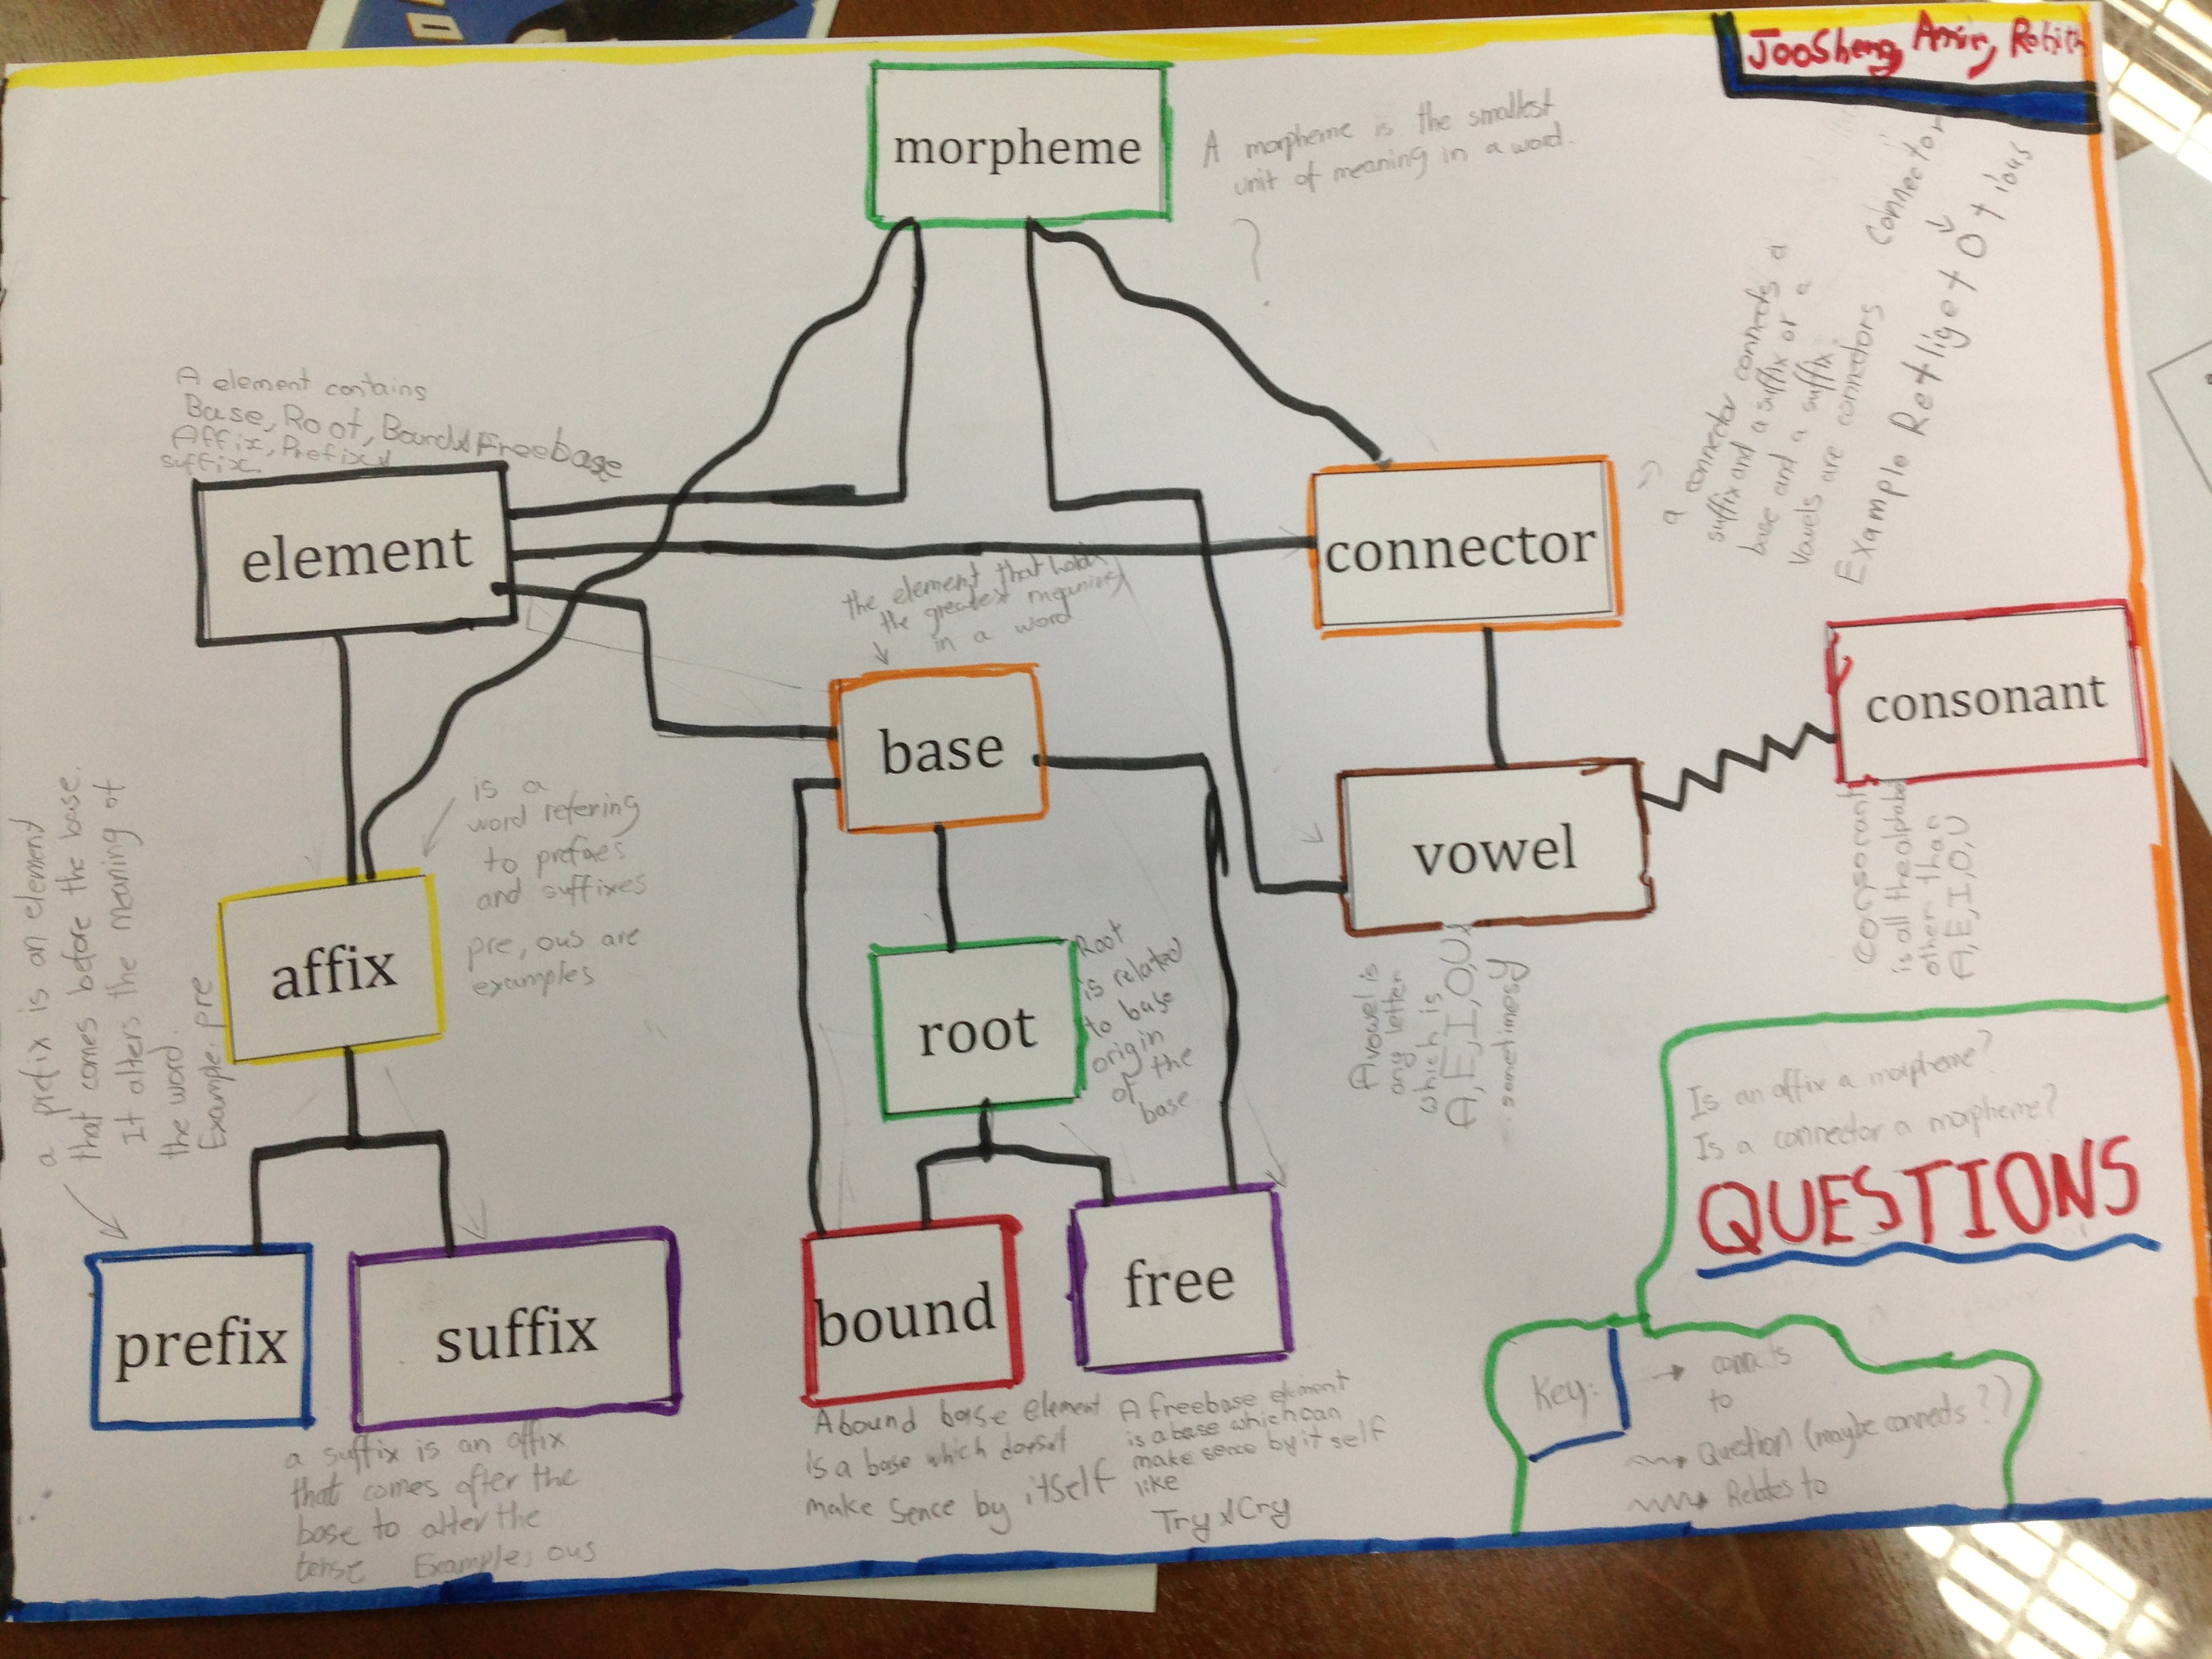 JooSheng, Amir,
morpheme
A morpheme is the smallest
unit of meaning in a word.
?
A element contains
Base, Root, Bound & Freebase
Affix, Prefix &
suffix.
element
connector
a connector connects a
suffix and a suffix or a
base and a suffix.
Vowels are connectors
Connector
Example Re + lige + O + ious
the element that holds
the greatest meaning
in a word
base
consonant
Consonant
is all the alphabet
other than
A, E, I, O, U
vowel
A vowel is
any letter
which is
A, E, I, O, U &
sometimes y
is a
word refering
to prefixes
and suffixes
pre, ous are
examples
affix
a prefix is an element
that comes before the base.
It alters the meaning of
the word.
Example: pre
root
Root
is related
to base
origin
of the
base
prefix
suffix
bound
free
a suffix is an affix
that comes after the
base to alter the
tense Examples ous
A bound base element
is a base which doesn't
make sence by itself
A freebase element
is a base which can
make sence by it self
like
Try & Cry
Is an affix a morpheme?
Is a connector a morpheme?
QUESTIONS
Key:
connects
to
Question (maybe connects?)
Relates to